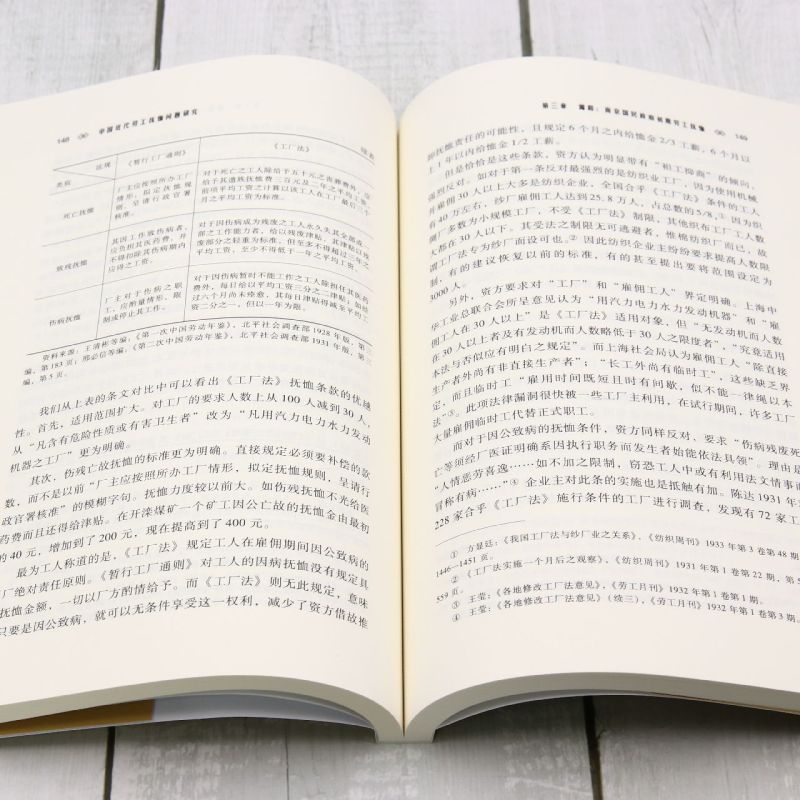 148 中国近代劳工抚恤问题研究
续表
法规
类别
《暂行工厂通则》
《工厂法》
死亡抚恤
厂主应按照所办工厂
情形，拟定抚恤规
则，呈请行政官署
核准。
对于死亡之工人除给予五十元之丧葬费外，应
给予其遗族抚恤费三百元及二年之平均工资。
前项平均工资之计算以该工人在工厂最后三个
月之平均工资为标准。
致残抚恤
其因工作致伤病者，
应负担其医药费，并
不得扣除其伤病期内
应得之工资。
对于因伤病成为残废之工人永久失其全部或一
部之工作能力者，给以残废津贴，其津贴以残
废部分之轻重为标准，但至多不得超过三年之
平均工资，至少不得低于一年之平均工资。
伤病抚恤
厂主对于伤病之职
工，应酌量情形，限
制或停止其工作。
对于因伤病暂时不能工作之工人除担任其医药
费外，每日给以平均工资三分之二津贴；如经
过六个月尚未痊愈，其每日津贴得减至平均工
资二分之一，但以一年为限。
资料来源：王清彬等编：《第一次中国劳动年鉴》，北平社会调查部 1928 年版，第三
编，第 183 页；邢必信等编：《第二次中国劳动年鉴》，北平社会调查部 1931 年版，第三
编，第 5 页。
我们从上表的条文对比中可以看出《工厂法》抚恤条款的优越
性。首先，适用范围扩大。对工厂的要求人数上从 100 人减到 30 人，
从“凡含有危险性质或有害卫生者”改为“凡用汽力电力水力发动
机器之工厂”更为明确。
其次，伤残亡故抚恤的标准更为明确。直接规定必须要补偿的款
数，而不是以前“厂主应按照所办工厂情形，拟定抚恤规则，呈请行
政官署核准”的模糊字句。抚恤力度较以前大。如伤残抚恤不光给医
药费而且还得给津贴。在开滦煤矿一个矿工因公亡故的抚恤金由最初
的 40 元，增加到了 200 元，现在提高到了 400 元。
最为工人称道的是，《工厂法》规定工人在雇佣期间因公致病的
厂绝对责任原则。《暂行工厂通则》对工人的因病抚恤没有规定具
抚恤金额，一切以厂方酌情给予。而《工厂法》则无此规定，意味
只要是因公致病，就可以无条件享受这一权利，减少了资方借故推
第三章 南京国民政府前期劳工抚恤 149
卸抚恤责任的可能性，且规定 6 个月之内给恤金 2/3 工薪，6 个月以
上 1 年以内给恤金 1/2 工薪。
但是恰恰是这些条款，资方认为明显带有“袒工抑商”的倾向，
强烈反对。如对于第一条反对最强烈的是纺织业工厂，因为使用机械
并雇佣 30 人以上大多是纺织企业，全国合乎《工厂法》条件的工人
有 40 万左右，纱厂雇佣工人达到 25.8 万人，占总数的 5/8，①因为织
绸厂多数为小规模工厂，不受《工厂法》制限，其他织布工厂工人数
大都在 30 人以下。其受法之制限无可逃避者，惟棉纺织厂而已，故
谓工厂法专为纱厂而设可也。②因此纺织企业主纷纷要求提高人数限
制，有的建议恢复以前的标准，有的甚至提出要将范围设定为
3000 人。
另外，资方要求对“工厂”和“雇佣工人”界定明确。上海中
华工业总联合会所呈意见认为“用汽力电力水力发动机器”和“雇
佣工人在 30 人以上”是《工厂法》适用对象，但“无发动机而人数
在 30 人以上者及有发动机而人数略低于 30 人之限度者”，“究竟适用
本法与否似应有明白之规定”。而上海社会局认为雇佣工人“除直接
生产者外尚有非直接生产者”；“长工外尚有临时工”，这些缺乏界
定，而且临时工“雇用时间既短且时有间歇，似不能一律绳以本
法”③。此项法律漏洞很快被一些厂主利用，在试行期间，许多工厂
大量雇佣临时工代替正式职工。
而对于因公致病的抚恤条件，资方同样反对，要求“伤病残废死
亡等须经厂医证明确系因执行职务而发生者始能依法具领”。理由是
“人情恶劳喜逸……如不加之限制，窃恐工人中或有利用法文情事而
冒称有病……”④ 企业主对此条的实施也是抵触有加。陈达 1931 年对
228 家合乎《工厂法》施行条件的工厂进行调查，发现有 72 家工厂
① 方显廷：《我国工厂法与纱厂业之关系》，《纺织周刊》1933 年第 3 卷第 48 期，
1446—1451 页。
② 《工厂法实施一个月后之观察》，《纺织周刊》1931 年第 1 卷第 22 期，第 5
559 页。
③ 王莹：《各地修改工厂法意见》，《劳工月刊》1932 年第 1 卷第 1 期。
④ 王莹：《各地修改工厂法意见》（续三），《劳工月刊》1932 年第 1 卷第